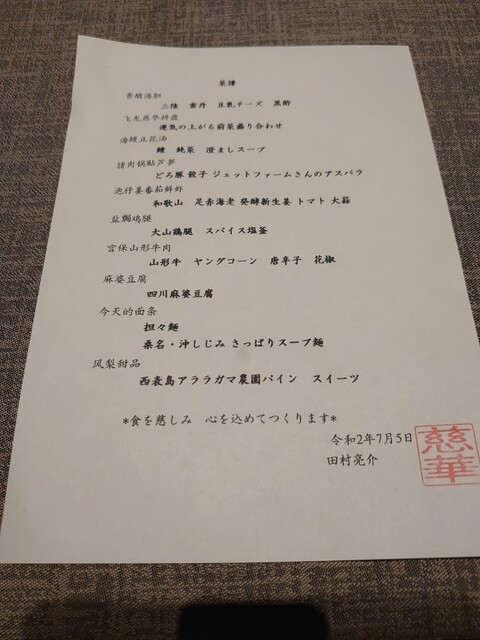 菜譜
香醋海胆
三陸 雲丹 豆乳チーズ 黒酢
飞龙慈华拼盘
運気の上がる前菜盛り合わせ
海鳗豆花汤
鱧 純菜 澄ましスープ
猪肉锅贴芦笋
どろ豚 餃子 ジェットファームさんのアスパラ
泡仔姜番茄鲜虾
和歌山 足赤海老 発酵新生姜 トマト 大蒜
盐焗鸡腿
大山鶏腿 スパイス塩釜
宫保山形牛肉
山形牛 ヤングコーン 唐辛子 花椒
麻婆豆腐
四川麻婆豆腐
今天的面条
担々麺
桑名・沖しじみ さっぱりスープ麺
凤梨甜品
西表島アララガマ農園パイン スイーツ
*食を慈しみ 心を込めてつくります*
令和2年7月5日
田村亮介
慈華